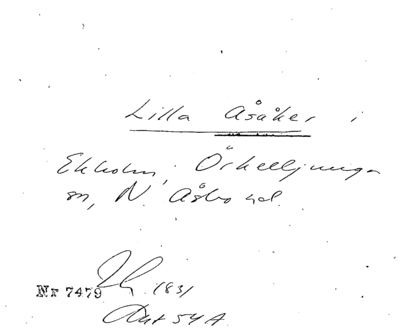 Lilla Åsåker i
Ekholm, Örkelljunga
sn, N. Åsbo hd.
Nr 7479
1831
Akt 54A